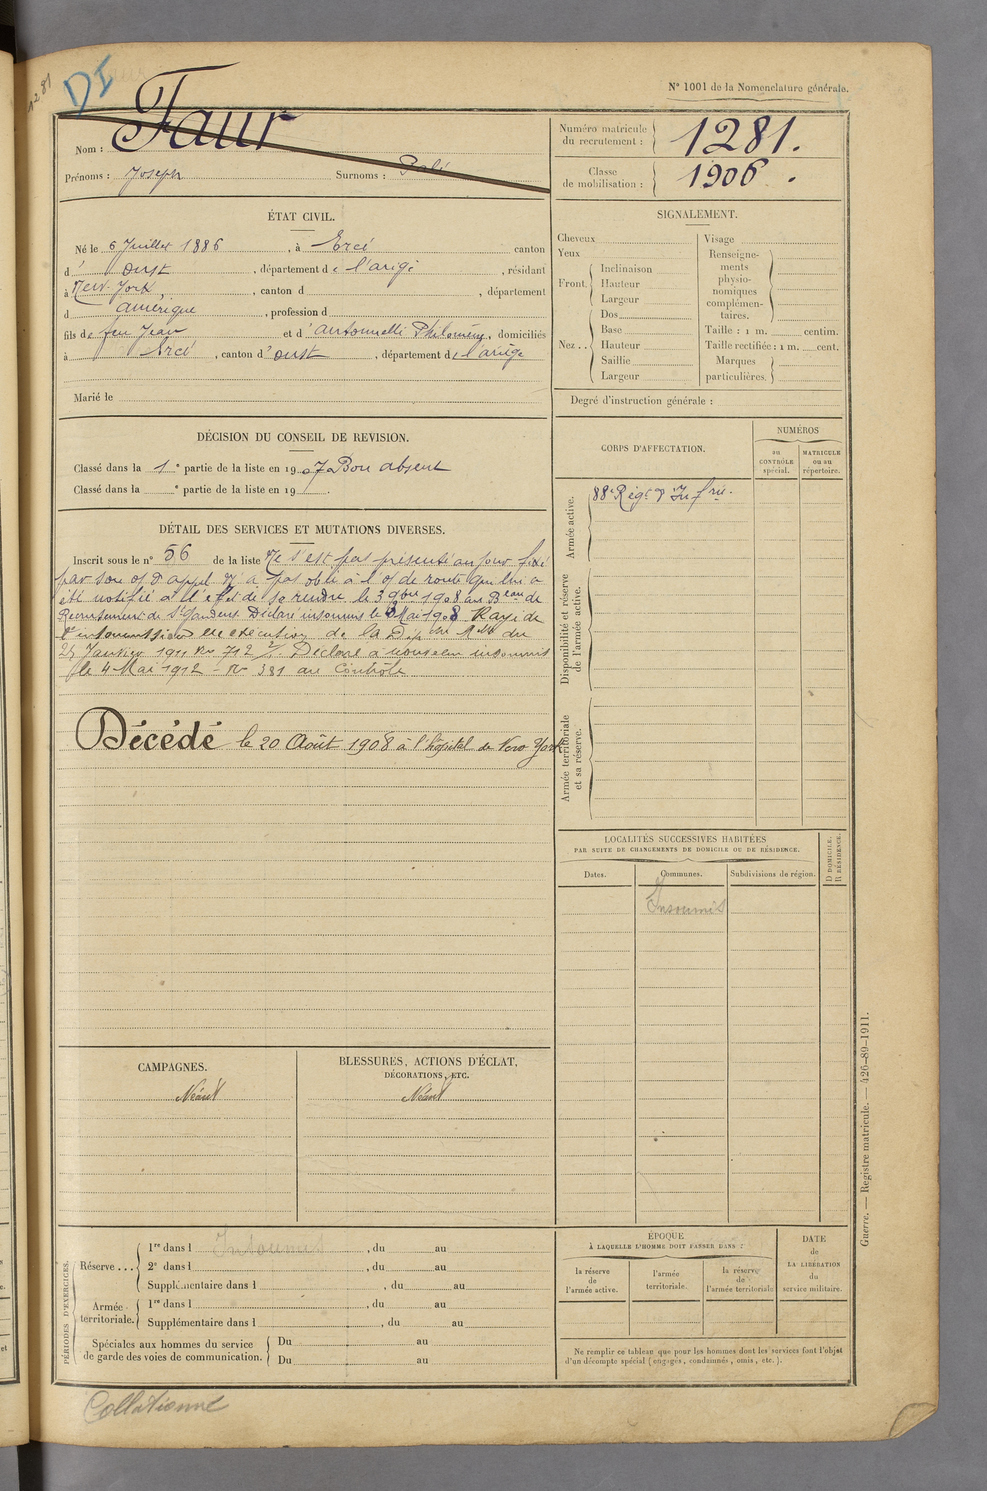 1281
DI
N° 1001 de la Nomenclature générale.
Nom : Faur
Prénoms : Joseph Surnoms :
Numéro matricule du recrutement : 1281.
Classe de mobilisation : 1906.
ÉTAT CIVIL.
Né le 6 Juillet 1886, à Ercé canton
d' Oust, département de l'ariège, résidant
à New-York, canton d , département
d amérique, profession d
fils de feu Jean et d'antonnelli Philomène, domiciliés
à Ercé, canton d'oust, département de l'ariège
Marié le
DÉCISION DU CONSEIL DE REVISION.
Classé dans la 1e partie de la liste en 1907 Bon absent
Classé dans la e partie de la liste en 19 .
DÉTAIL DES SERVICES ET MUTATIONS DIVERSES.
Inscrit sous le n° 56 de la liste Ne s'est pas présenté au jour fixé
par son of d'appel N'a pas obéi à l'of de route qui lui a
été notifié a l'effet de se rendre le 3 9bre 1908 au Beau de
Recrutement de St Gaudens Déclaré insoumis le Mai 1908 Rayé de
l'insoumission en exécution de la Dép. Mlle du
25 Janvier 1911 No 712 2/1. Déclaré à nouveau insoumis
le 4 Mai 1912 - No 381 au Contrôle
Décédé le 20 Août 1908 à l'hôpital de New York
CAMPAGNES.
Néant
BLESSURES, ACTIONS D'ÉCLAT,
DÉCORATIONS, ETC.
Néant
PÉRIODES D'EXERCICES.
Réserve ...
1re dans l Insoumis , du au
2e dans l , du au
Supplémentaire dans l , du au
Armée territoriale.
1re dans l , du au
Supplémentaire dans l , du au
Spéciales aux hommes du service
de garde des voies de communication.
Du au
Du au
SIGNALEMENT.
Cheveux
Yeux
Front.
Inclinaison
Hauteur
Largeur
Nez ..
Dos
Base
Hauteur
Saillie
Largeur
Visage
Renseignements physionomiques complémentaires.
Taille : 1 m. centim.
Taille rectifiée : 1 m. cent.
Marques particulières.
Degré d'instruction générale :
CORPS D'AFFECTATION.
NUMÉROS
au CONTRÔLE spécial.
MATRICULE ou au répertoire.
Armée active.
88e Régt d'Infrie.
Disponibilité et réserve de l'armée active.
Armée territoriale et sa réserve.
LOCALITÉS SUCCESSIVES HABITÉES
PAR SUITE DE CHANGEMENTS DE DOMICILE OU DE RÉSIDENCE.
Dates.
Communes.
Subdivisions de région.
D DOMICILE.
R RÉSIDENCE.
Insoumis
ÉPOQUE
À LAQUELLE L'HOMME DOIT PASSER DANS :
la réserve de l'armée active.
l'armée territoriale.
la réserve de l'armée territoriale
DATE
de
LA LIBÉRATION
du
service militaire.
Ne remplir ce tableau que pour les hommes dont les services font l'objet
d'un décompte spécial (engagés, condamnés, omis, etc.).
Guerre. — Registre matricule. — 426-89-1911.
Collationné